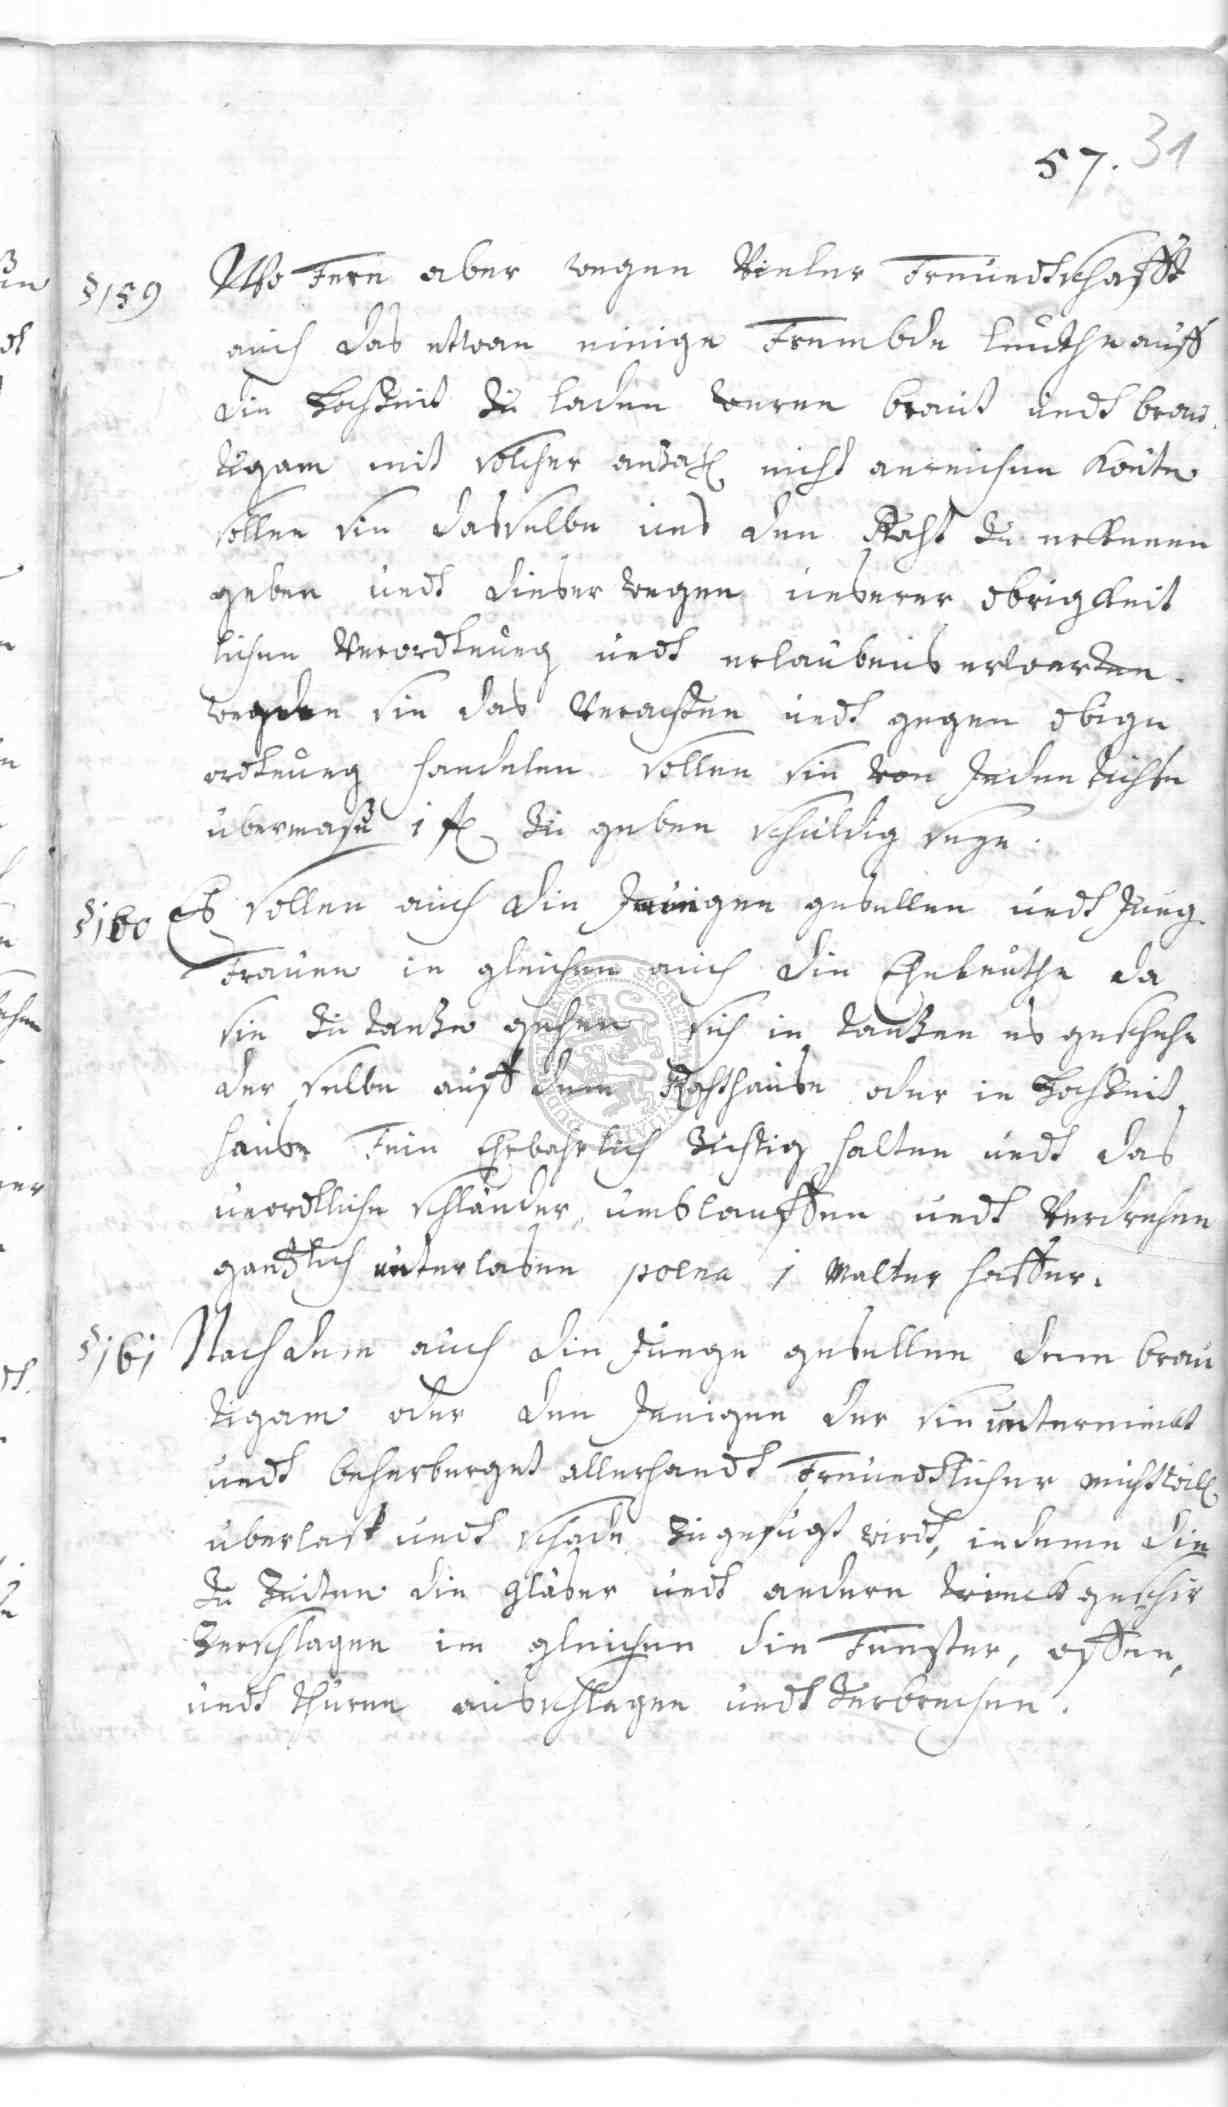 57. 31
§159 Wo Fern aber wegen Vieler Freundtschafft
auch das etwan einige Frembde leuthe auff
die Hochzeit zu laden weren braut undt breu-
tigam mit solcher anzahl nicht anreichen konte
sollen sie dasselbe uns den Raht zu erkennen
geben undt dieser wegen unserer obrigkeit
lichen Verordtnung undt erlaubnis erwarten.
werden sie das Verachten undt gegen obige
ordtnung handelen sollen sie von Jeden tische
ubermaße 1 fl zu geben schuldig seye.
§160 Es sollen auch die Jungen gesellen undt Jung-
Frauen in gleichen auch die Eheleuthe da
sie zu tantze gehen sich in tantzen es geschehe
der selbe auff dem Rahthause oder in Hochzeit
hause Fein Ehrbahrlich Züchtig halten undt das
unordtliche schlander, umblauffen undt Verdrehen
gantzlich unterlasen poena 1 Malter haffer.
§161 Nach deme auch die Junge gesellen dem breu
tigam oder den Jenigen der sie unternimbt
undt beherberget allerhandt Freundtlicher
uberlast undt schade zugefugt wirdt, indeme die
zu Zeiten die gläser undt andere trinckgeschir
Zerschlagen im gleichen die Fenster, offen,
undt thüren ausschlagen undt zerbrechen.